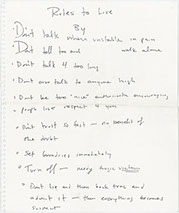 Rules to Live
By
Don't talk where unstable in pain
Don't tell too and walk alone
Don't talk if too long
Don't over talk to anyone high
Don't be too "nice" encouraging
people lose respect if you
Don't trust so fast – no benefit of
the doubt
Set boundaries immediately
Turn off – every
Don't lie and then back track and
admit it – then everything becomes
suspect